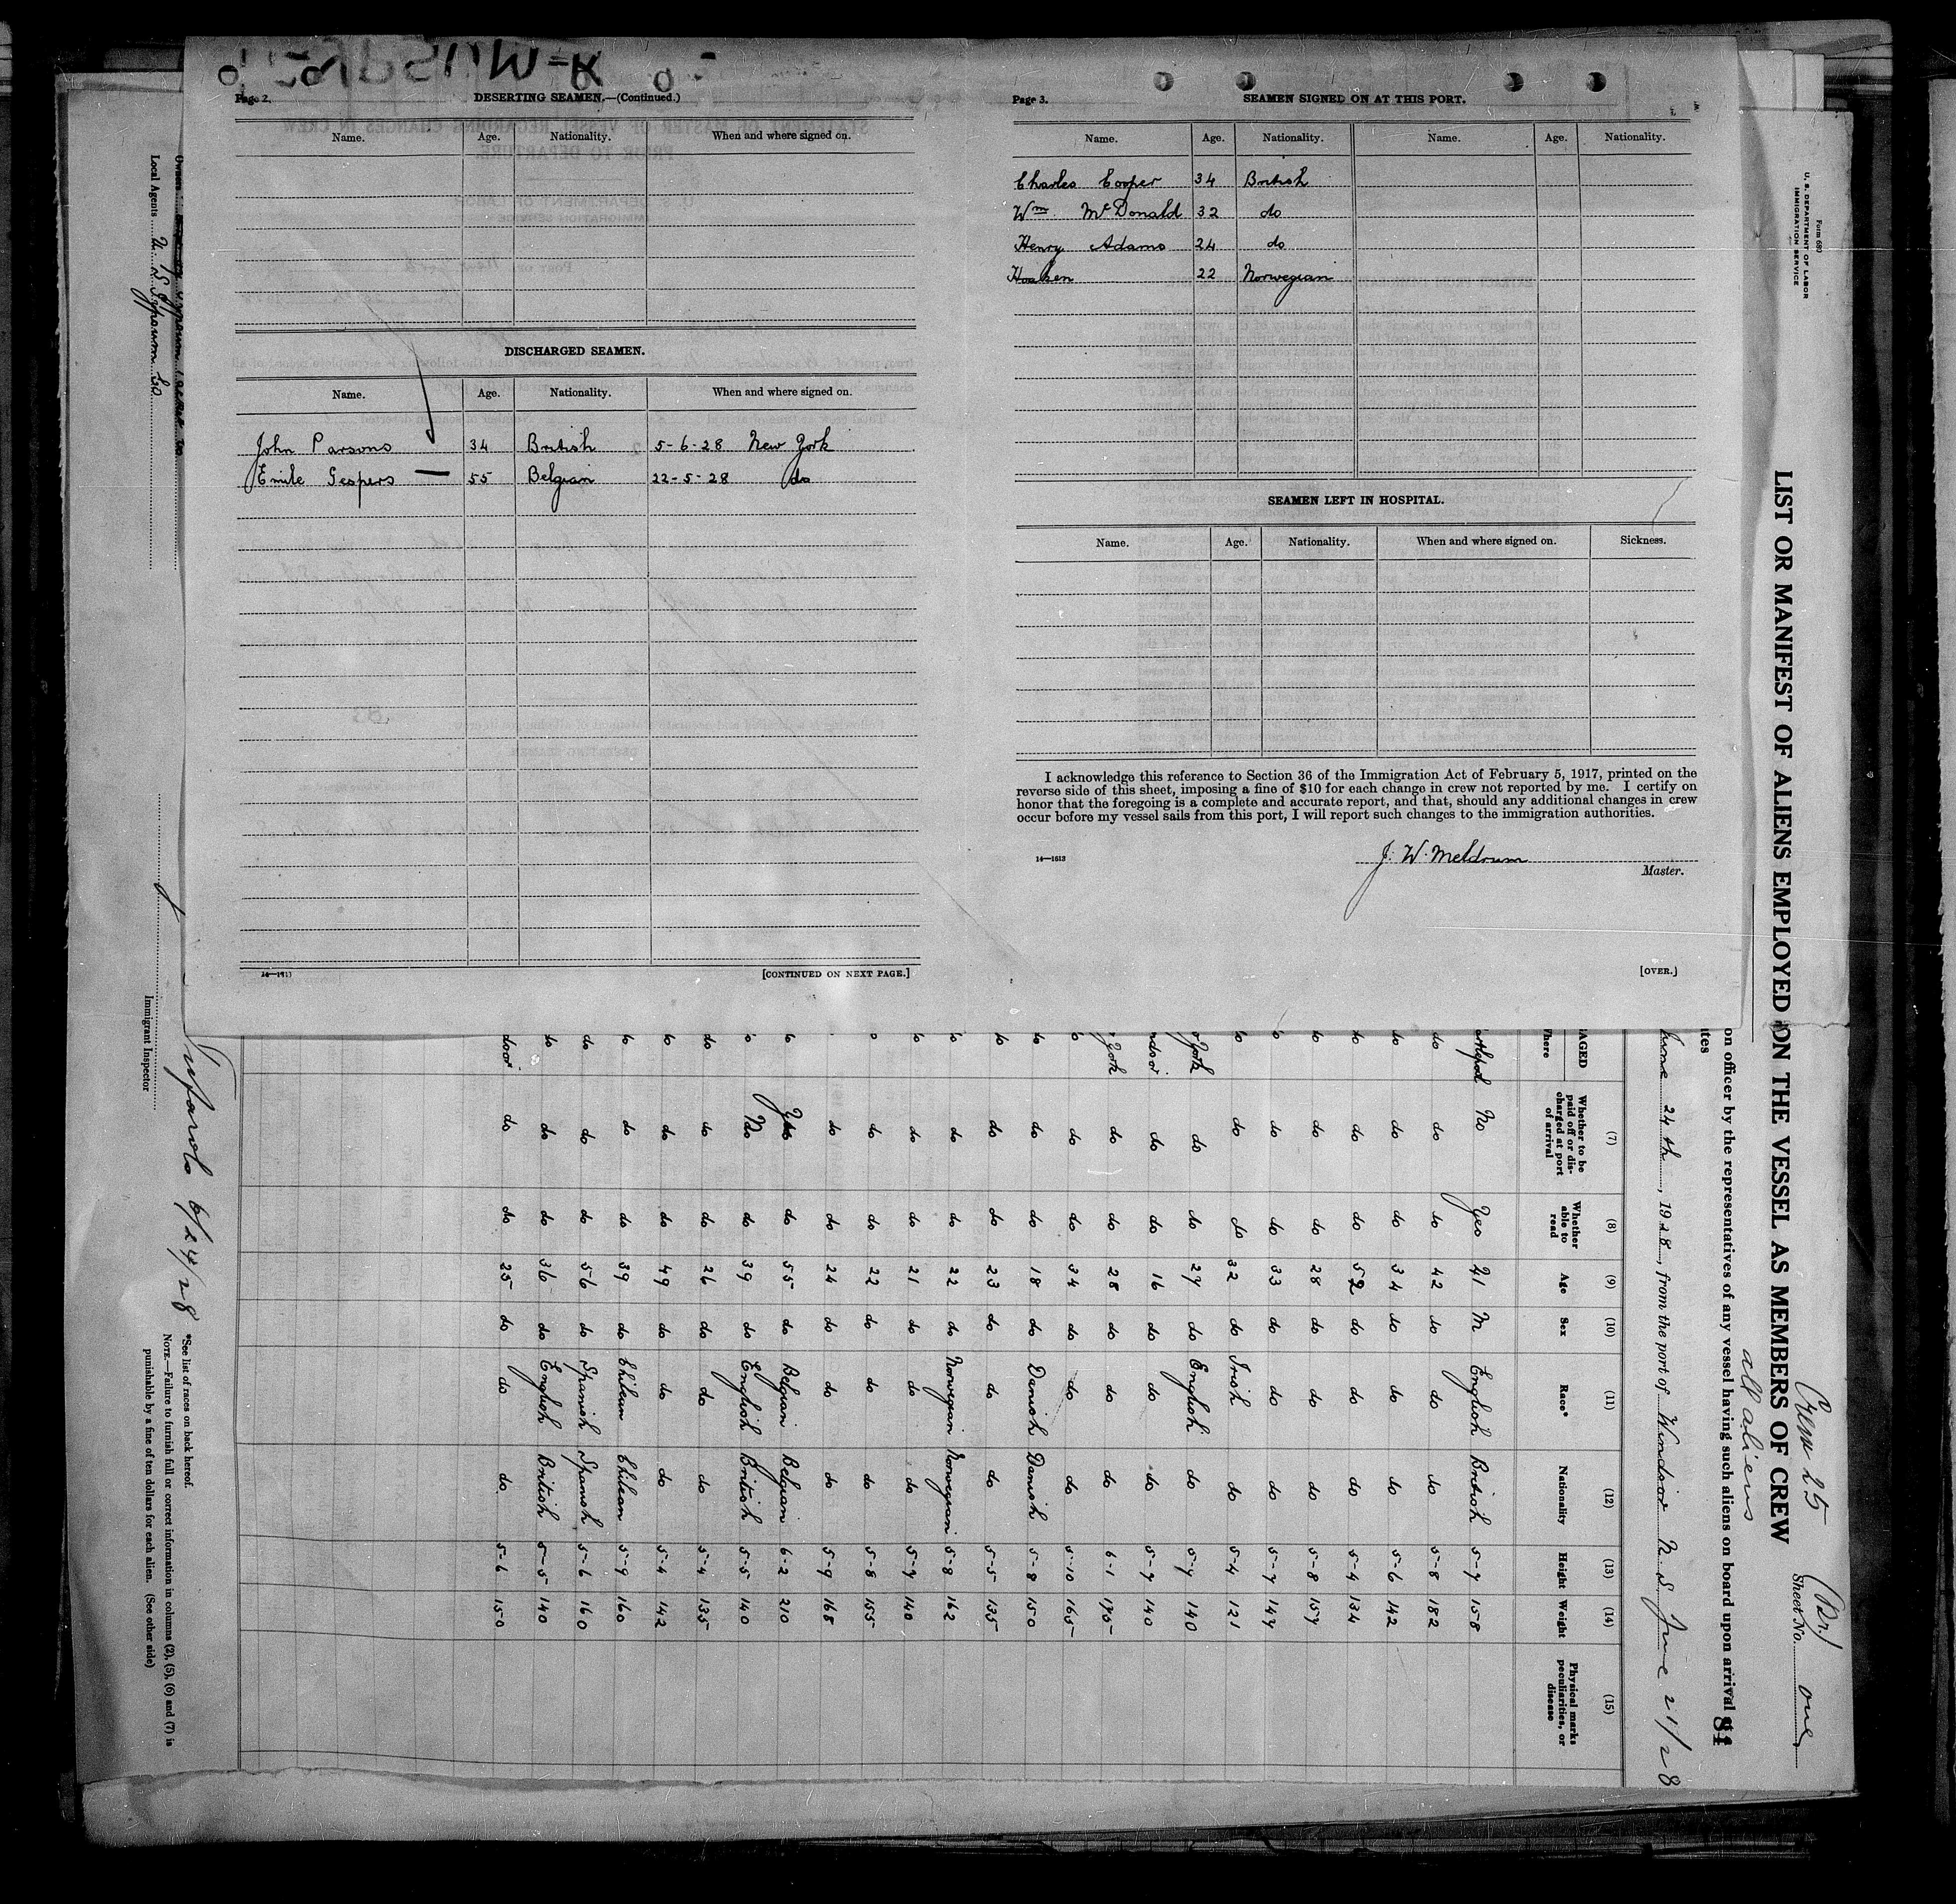 Page 2.
DESERTING SEAMEN.—(Continued.)
Name. Age. Nationality. When and where signed on.
DISCHARGED SEAMEN.
Name. Age. Nationality. When and where signed on.
John Parsons 34 British 5-6-28 New York
Emile Gespers — 55 Belgian 22-5-28 do
14—1613
[CONTINUED ON NEXT PAGE.]
Page 3.
SEAMEN SIGNED ON AT THIS PORT.
Name. Age. Nationality. Name. Age. Nationality.
Charles Cooper 34 British
Wm McDonald 32 do
Henry Adams 24 do
Haaken 22 Norwegian
SEAMEN LEFT IN HOSPITAL.
Name. Age. Nationality. When and where signed on. Sickness.
I acknowledge this reference to Section 36 of the Immigration Act of February 5, 1917, printed on the
reverse side of this sheet, imposing a fine of $10 for each change in crew not reported by me. I certify on
honor that the foregoing is a complete and accurate report, and that, should any additional changes in crew
occur before my vessel sails from this port, I will report such changes to the immigration authorities.
14—1613
J. W. Meldrum
Master.
[OVER.]
Form 680
U. S. DEPARTMENT OF LABOR
IMMIGRATION SERVICE
Crew 25 (Br.)
all aliens
Sheet No. one
LIST OR MANIFEST OF ALIENS EMPLOYED ON THE VESSEL AS MEMBERS OF CREW
on officer by the representatives of any vessel having such aliens on board upon arrival at
84
June 24th, 1928, from the port of Windsor N.S. June 21/28
(7) (8) (9) (10) (11) (12) (13) (14) (15)
Whether to be paid off or discharged at port of arrival
Whether able to read
Age
Sex
Race*
Nationality
Height
Weight
Physical marks peculiarities, or disease
No Yes 41 M English British 5-7 158
do do do 42 do do do 5-8 182
do do do 34 do do do 5-6 142
do do do 52 do do do 5-4 134
do do do 28 do do do 5-8 157
do do 33 do do do 5-7 147
do do 32 do Irish do 5-4 121
York do do 27 do English do 5-7 140
do do 16 do do do 5-7 140
York do do 28 do do do 6-1 175
do do 34 do do do 5-10 165
do do do 18 do Danish Danish 5-8 150
do do do 23 do do do 5-5 135
do do 22 do Norwegian Norwegian 5-8 162
do do 21 do do do 5-7 140
do do 22 do do do 5-8 155
do do 24 do do do 5-9 168
Yes do 55 do Belgian Belgian 6-2 210
No do 39 do English British 5-5 140
do do do 26 do do do 5-4 135
do do 49 do do do 5-4 142
do do 39 do Chilean Chilean 5-9 160
do do do 56 do Spanish Spanish 5-6 160
do do 36 do English British 5-5 140
do do 25 do do do 5-6 150
Local Agents U. S. Gypsum Co
Owners
6/24/28
Immigrant Inspector
*See list of races on back hereof.
NOTE.—Failure to furnish full or correct information in columns (2), (5), (6) and (7) is
punishable by a fine of ten dollars for each alien. (See other side)